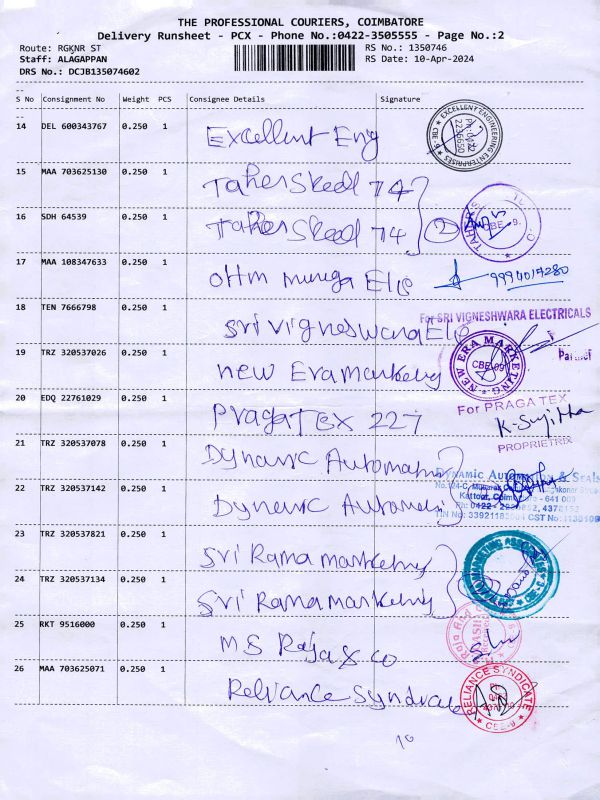 THE PROFESSIONAL COURIERS, COIMBATORE
Delivery Runsheet - PCX - Phone No.:0422-3505555 - Page No.:2
Route: RGKNR ST RS No.: 1350746
Staff: ALAGAPPAN RS Date: 10-Apr-2024
DRS No.: DCJB135074602
S No Consignment No Weight PCS Consignee Details Signature
14 DEL 600343767 0.250 1 Excellent Eng
EXCELLENT ENGINEERING ENTERPRISES * CBE-9 *
15 MAA 703625130 0.250 1 Taher Skedl 74
16 SDH 64539 0.250 1 Taher Skedl 74 2
CBE-9.
17 MAA 108347633 0.250 1 Ohm muruga Elc 9994017280
18 TEN 7666798 0.250 1 Sri Vigneswara Elc
For SRI VIGNESHWARA ELECTRICALS
Partner
19 TRZ 320537026 0.250 1 new Era markeng
* NEW ERA MARKETING * CBE-09
20 EDQ 22761029 0.250 1 Praga Tex 227
For PRAGA TEX
K-Sujitha
PROPRIETRIX
21 TRZ 320537078 0.250 1 Dynamic Automatin
22 TRZ 320537142 0.250 1 Dynamic Automain
DYNAMIC Automation & Seals
Kattoor, Coimbatore - 641 009
23 TRZ 320537821 0.250 1 Sri Rama marketing
24 TRZ 320537134 0.250 1 Sri Rama marketing
25 RKT 9516000 1 MS Raja & co
26 MAA 703625071 0.250 1 Reliance Syndicate
RELIANCE SYNDICATE CBE-9